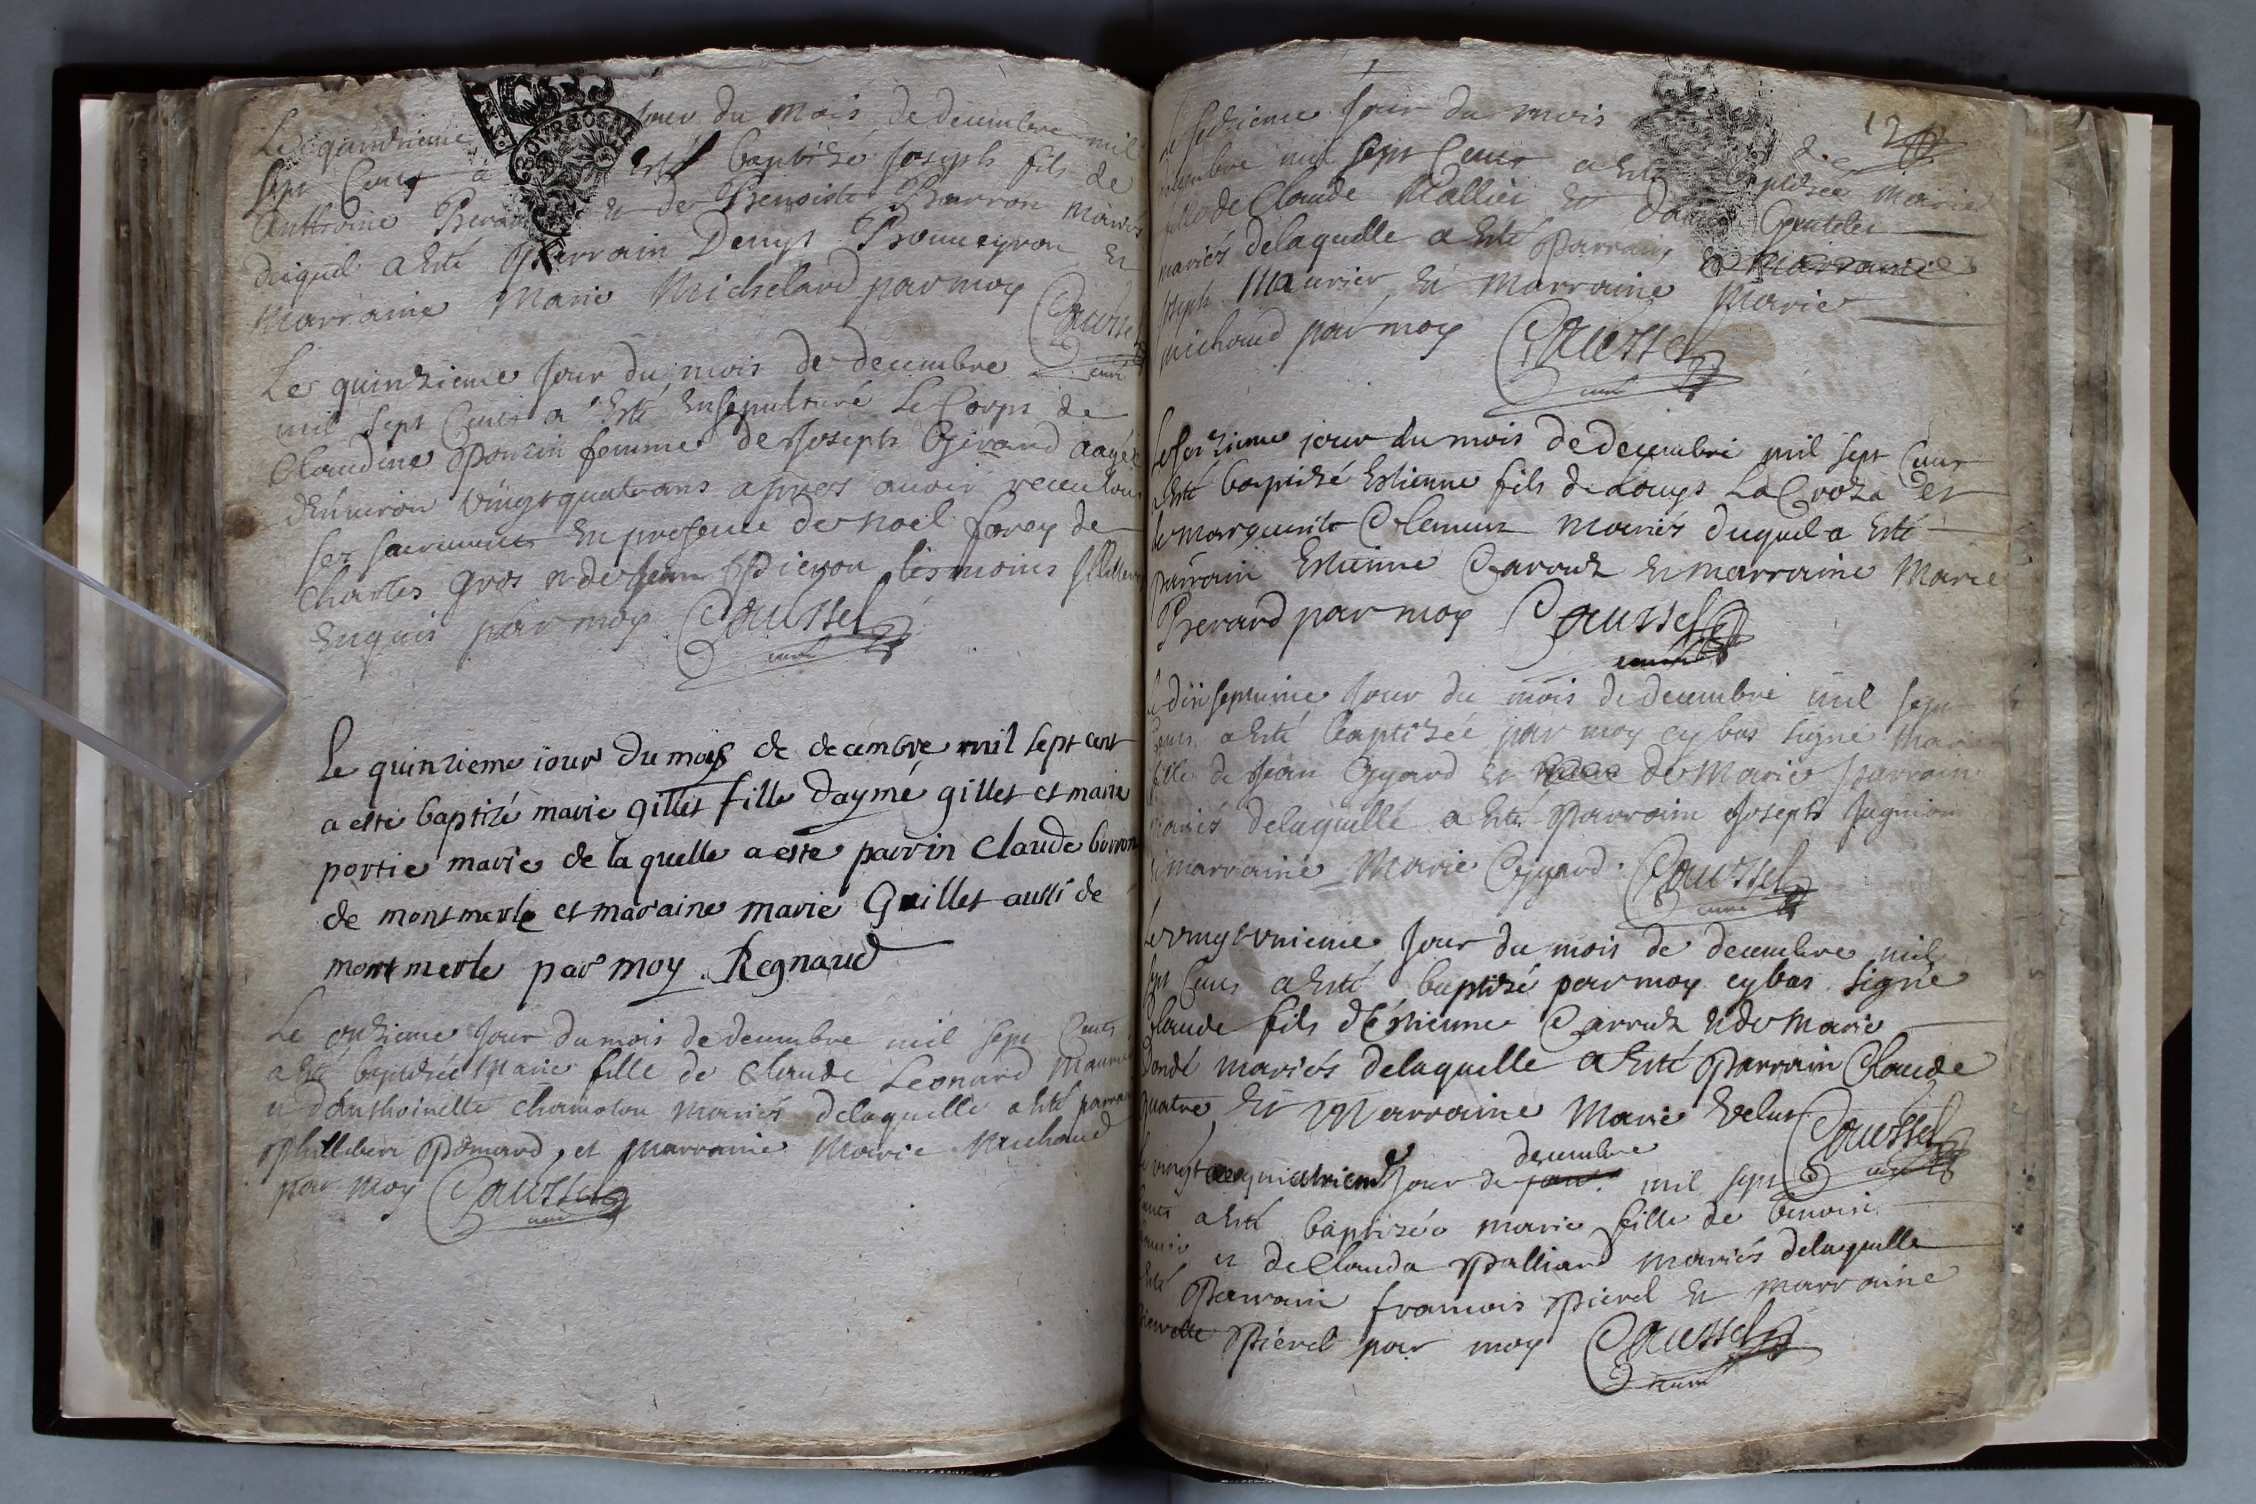 Le quindzieme jour du mois de decembre mil
sept Cens a esté baptisé Joseph fils de
Anthoine et de Benoiste Barron mariés
duquel a esté parrain Denys Bonneyron et
marraine Marie Michelard par moy Caussel
curé
Le quinzieme Jour du mois de decembre
mil sept Cens a esté ensepulturé le Corps de
Claudine Ponsin femme de Joseph Girand aagée
d'environ vingt quatre ans apres avoir receu tous
ses sacrements en presence de noel forey de
Charles gros et de Jean Pieron tesmoins
enquis par moy Caussel
curé
Le quinzieme iour du moys de decembre mil sept cent
a esté baptizé marie gillet fille daymé gillet et marie
portie marie de la quelle a esté parrin claude borron
de montmerle et maraine marie Guillet aussi de
montmerle par moy Regnaud
Le onzieme Jour du mois de decembre mil sept Cents
a esté baptizée Marie fille de Claude Leonard Maurier
et d'anthoinette Chamoton mariés delaquelle a esté parrain
Philibert Pomard, et marraine Marie Michaud
par moy Caussel
curé
12
le sedzieme Jour du mois de
decembre mil sept Cens a esté baptizée Marie
fille de Claude Mallier et Gentelet
mariés delaquelle a esté parrain
Joseph Maurier et marraine Marie
michaud par moy Caussel
curé
Le sezieme jour du mois de decembre mil sept Cens
a esté baptizé Estienne fils de Louys La Croza et
de marguerite Clemens mariés duquel a esté
parrain Estienne Carrouz et marraine Marie
Berard par moy Caussel
curé
Le dix septieme Jour du mois de decembre mil sept
Cens a esté baptizée par moy cy bas signé Marie
fille de Jean Gyard et de Marie Parrain
mariés delaquelle a esté Parrain Joseph Jugnion
et marraine Marie Gyard. Caussel
curé
Le vingt unieme Jour du mois de decembre mil
sept Cens a esté baptizé par moy cy bas signé
Claude fils d'Estienne Carrouz et de Marie
Dondé mariés delaquelle a esté Parrain Claude
quatre et Marraine Marie Velus Caussel
curé
decembre
Le vingt quatrieme Jour de mil sept
Cents a esté baptisée marie fille de benoist
et de Clauda Palliard mariés delaquelle
a esté Parrain francois Pierel et marraine
Pierrette Pierel par moy Caussel
curé